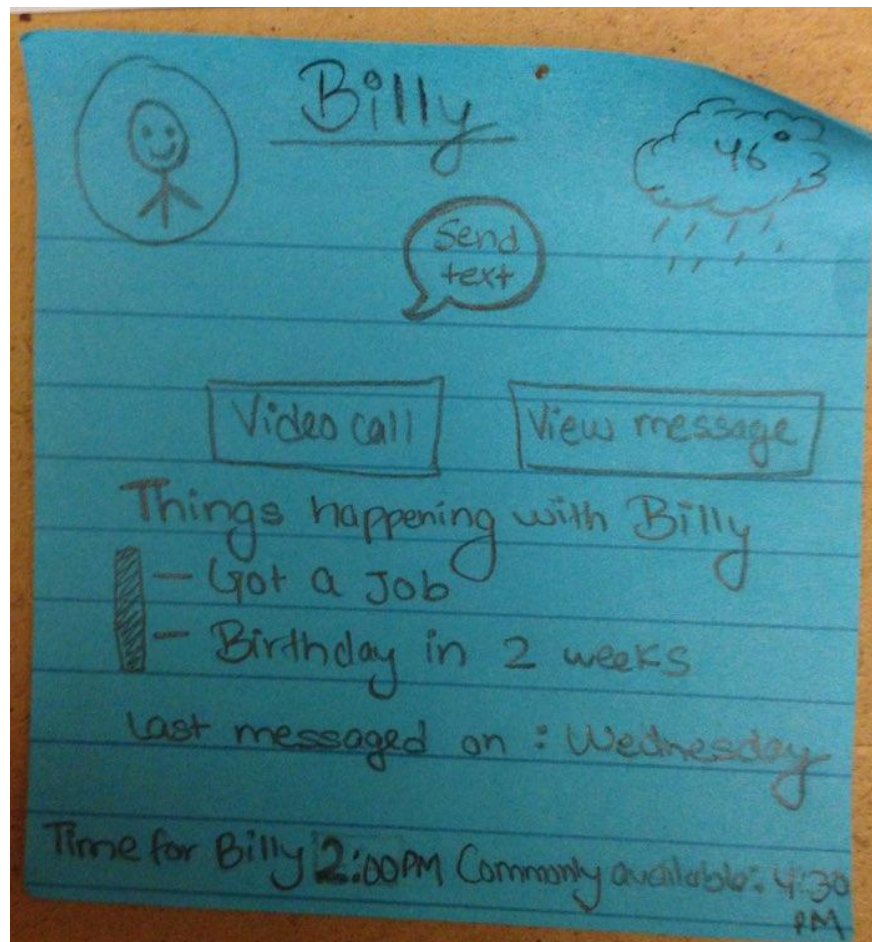 Billy
46°
Send
text
Video call
View message
Things happening with Billy
- Got a Job
- Birthday in 2 weeks
Last messaged on : Wednesday
Time for Billy 2:00PM Commonly available: 4:30
PM